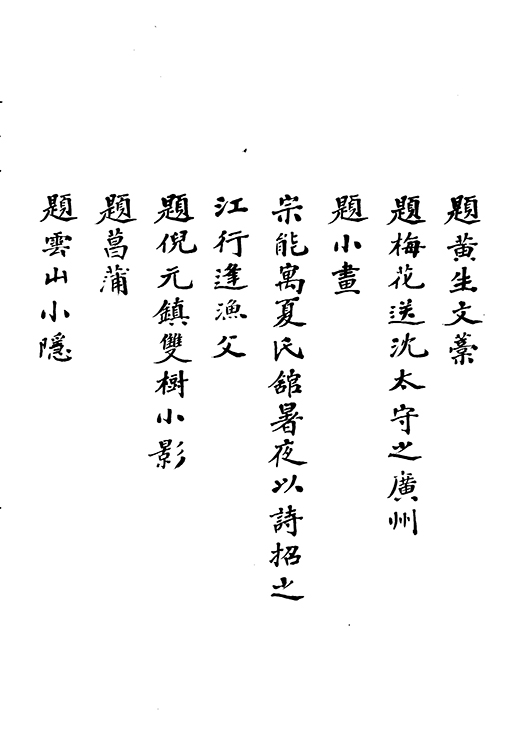 題黃生文藁
題梅花送沈太守之廣州
題小畫
宗能寓夏氏舘暑夜以詩招之
江行逢漁父
題倪元鎮雙樹小影
題菖蒲
題雲山小隱